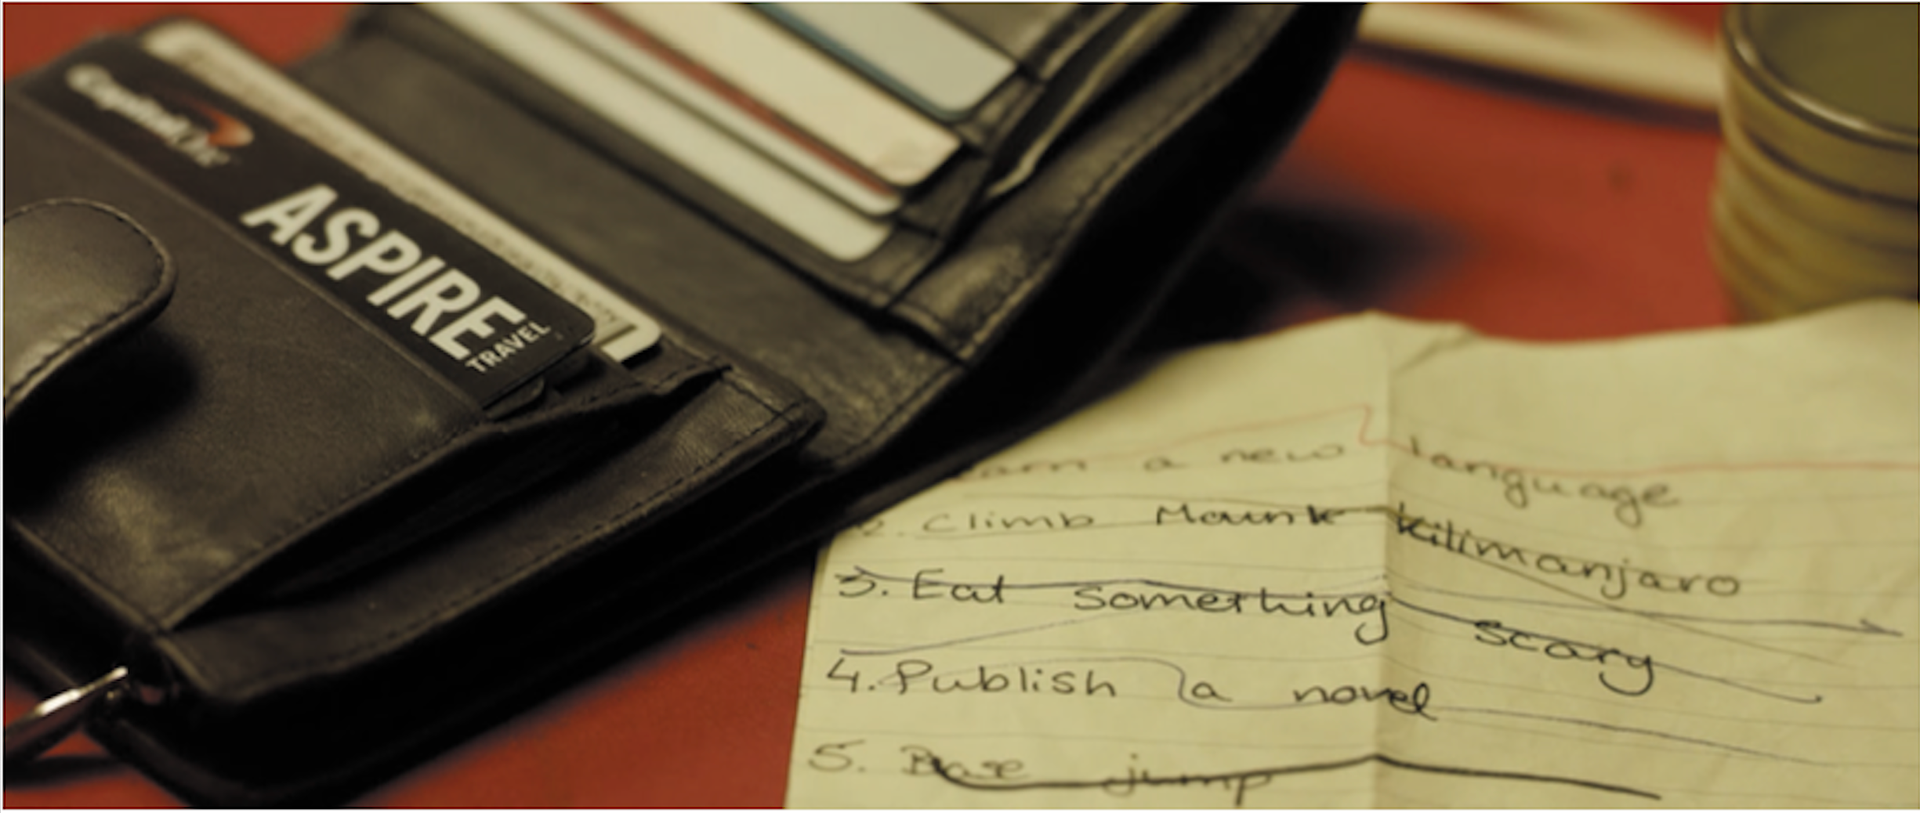 CapitalOne
ASPIRE
TRAVEL
a new language
2. Climb Mount Kilimanjaro
3. Eat something scary
4. Publish a novel
5. Base jump